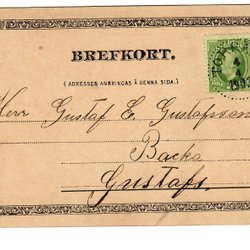 BREFKORT.
(ADRESSEN ANBRINGAS Å DENNA SIDA.)
Herr Gustaf E. Gustafsson
Backa
Gustafs.